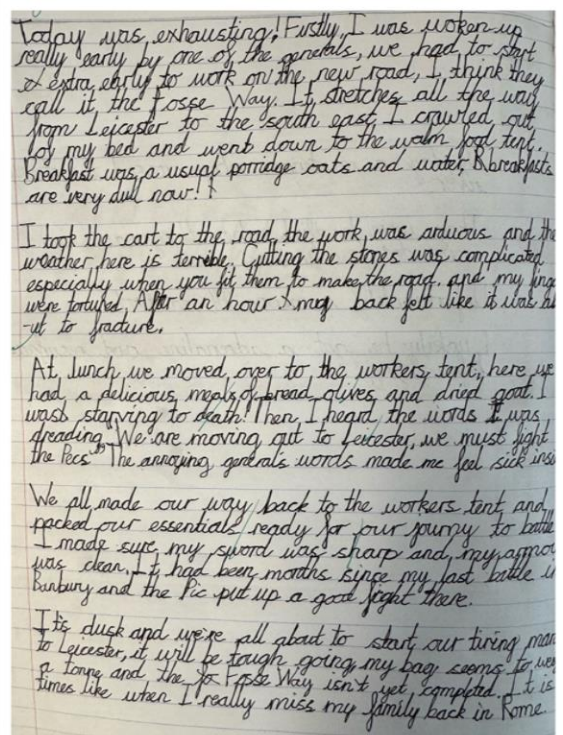 Today was exhausting! Firstly, I was woken up
really early by one of the generals, we had to start
extra early to work on the new road, I think they
call it the Fosse Way. It stretches all the way
from Leicester to the south east, I crawled out
of my bed and went down to the walm food tent.
Breakfast was a usual porridge oats and water, Breakfasts
are very dull now!
I took the cart to the road, the work was arduous and the
weather here is terrible. Cutting the stones was complicated
especially when you fit them to make the road. and my finge
were tortured. After an hour my back felt like it was ab
-ut to fracture.
At lunch we moved over to the workers tent, here we
had a delicious meals of bread olives and dried goat. I
was starving to death! Then I heard the words I was
dreading "We are moving out to Leicester, we must fight
the Pecs" The annoying generals words made me feel sick insi
We all made our way back to the workers tent and
packed our essentials ready for our journy to battle
I made sure my sword was sharp and my armou
was clean. It had been months since my last battle in
Banbury and the Pic put up a good fight there.
It's dusk and we're all about to start our tiring mar
to Leicester, it will be tough going my bag seems to wei
a tonne and the Fosse Way isn't yet completed. It is
times like when I really miss my family back in Rome.